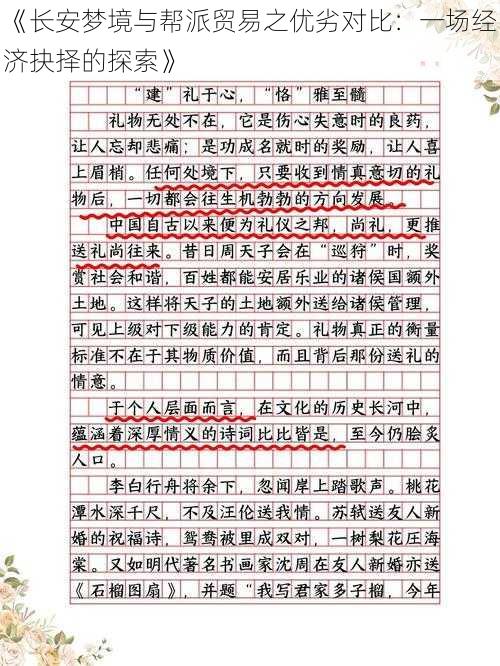 《长安梦境与帮派贸易之优劣对比：一场经
济抉择的探索》
“建”礼于心，“恪”雅至髓
礼物无处不在，它是伤心失意时的良药，
让人忘却悲痛；是功成名就时的奖励，让人喜
上眉梢。任何处境下，只要收到情真意切的礼
物后，一切都会往生机勃勃的方向发展。
中国自古以来便为礼仪之邦，尚礼，更推
送礼尚往来。昔日周天子会在“巡狩”时，奖
赏社会和谐，百姓都能安居乐业的诸侯国额外
土地。这样将天子的土地额外送给诸侯管理，
可见上级对下级能力的肯定。礼物真正的衡量
标准不在于其物质价值，而且背后那份送礼的
情意。
于个人层面而言，在文化的历史长河中，
蕴涵着深厚情义的诗词比比皆是，至今仍脍炙
人口。
李白行舟将余下，忽闻岸上踏歌声。桃花
潭水深千尺，不及汪伦送我情。苏轼送友人新
婚的祝福诗，鸳鸯被里成双对，一树梨花压海
棠。又如明代著名书画家沈周在友人新婚亦送
《石榴图扇》，并题“我写君家多子榴，今年